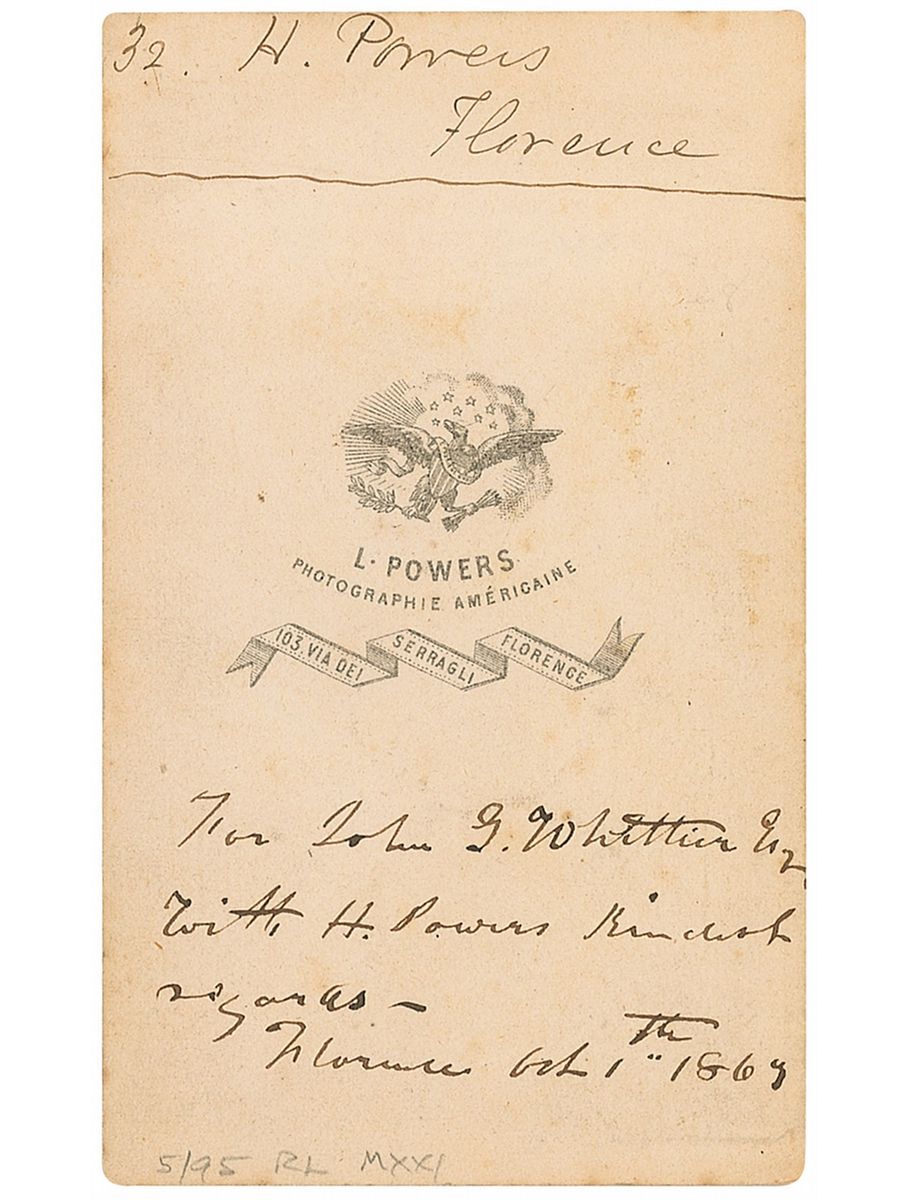 32. H. Powers
Florence
L. POWERS.
PHOTOGRAPHIE AMÉRICAINE
103. VIA DEI SERRAGLI FLORENCE
For John G. Whittier Esq
With H. Powers Kindest
regards —
Florence Oct 1th 1869
5/95 RL MXXI